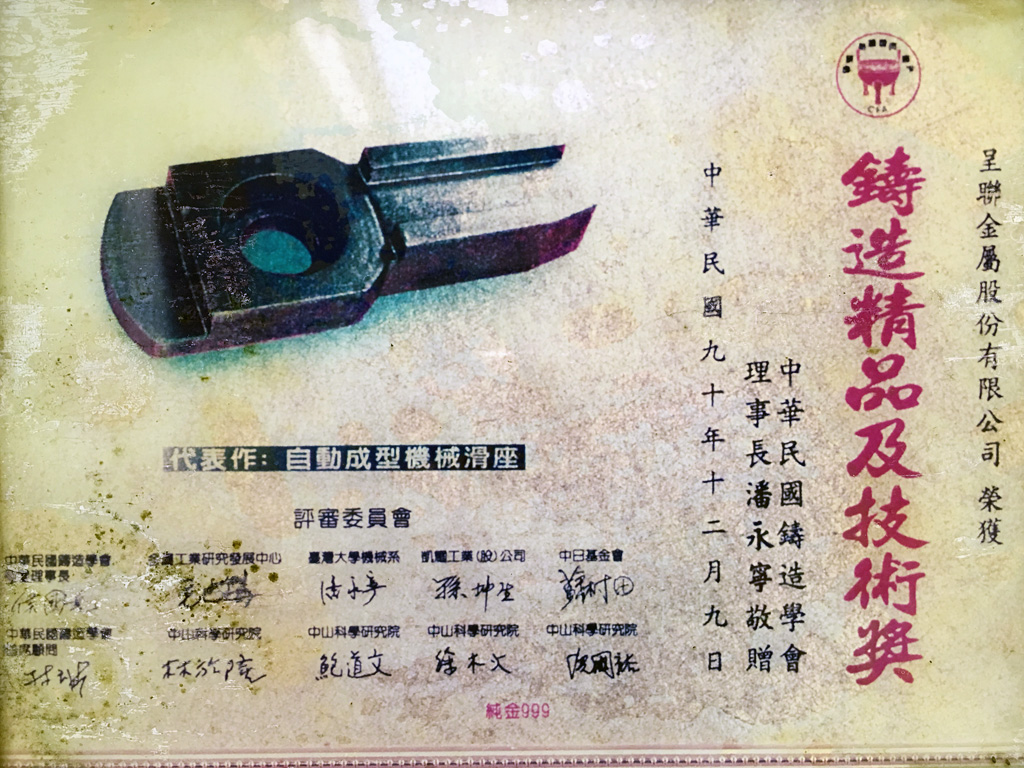 呈聯金屬股份有限公司 榮獲
鑄造精品及技術獎
中華民國鑄造學會
理事長潘永寧敬贈
中華民國九十年十二月九日
代表作: 自動成型機械滑座
評審委員會
中華民國鑄造學會
理事長
工業研究發展中心
臺灣大學機械系
凱耀工業(股)公司
中日基金會
中華民國鑄造學會
顧問
中山科學研究院
中山科學研究院
鮑道文
中山科學研究院
中山科學研究院
純金999